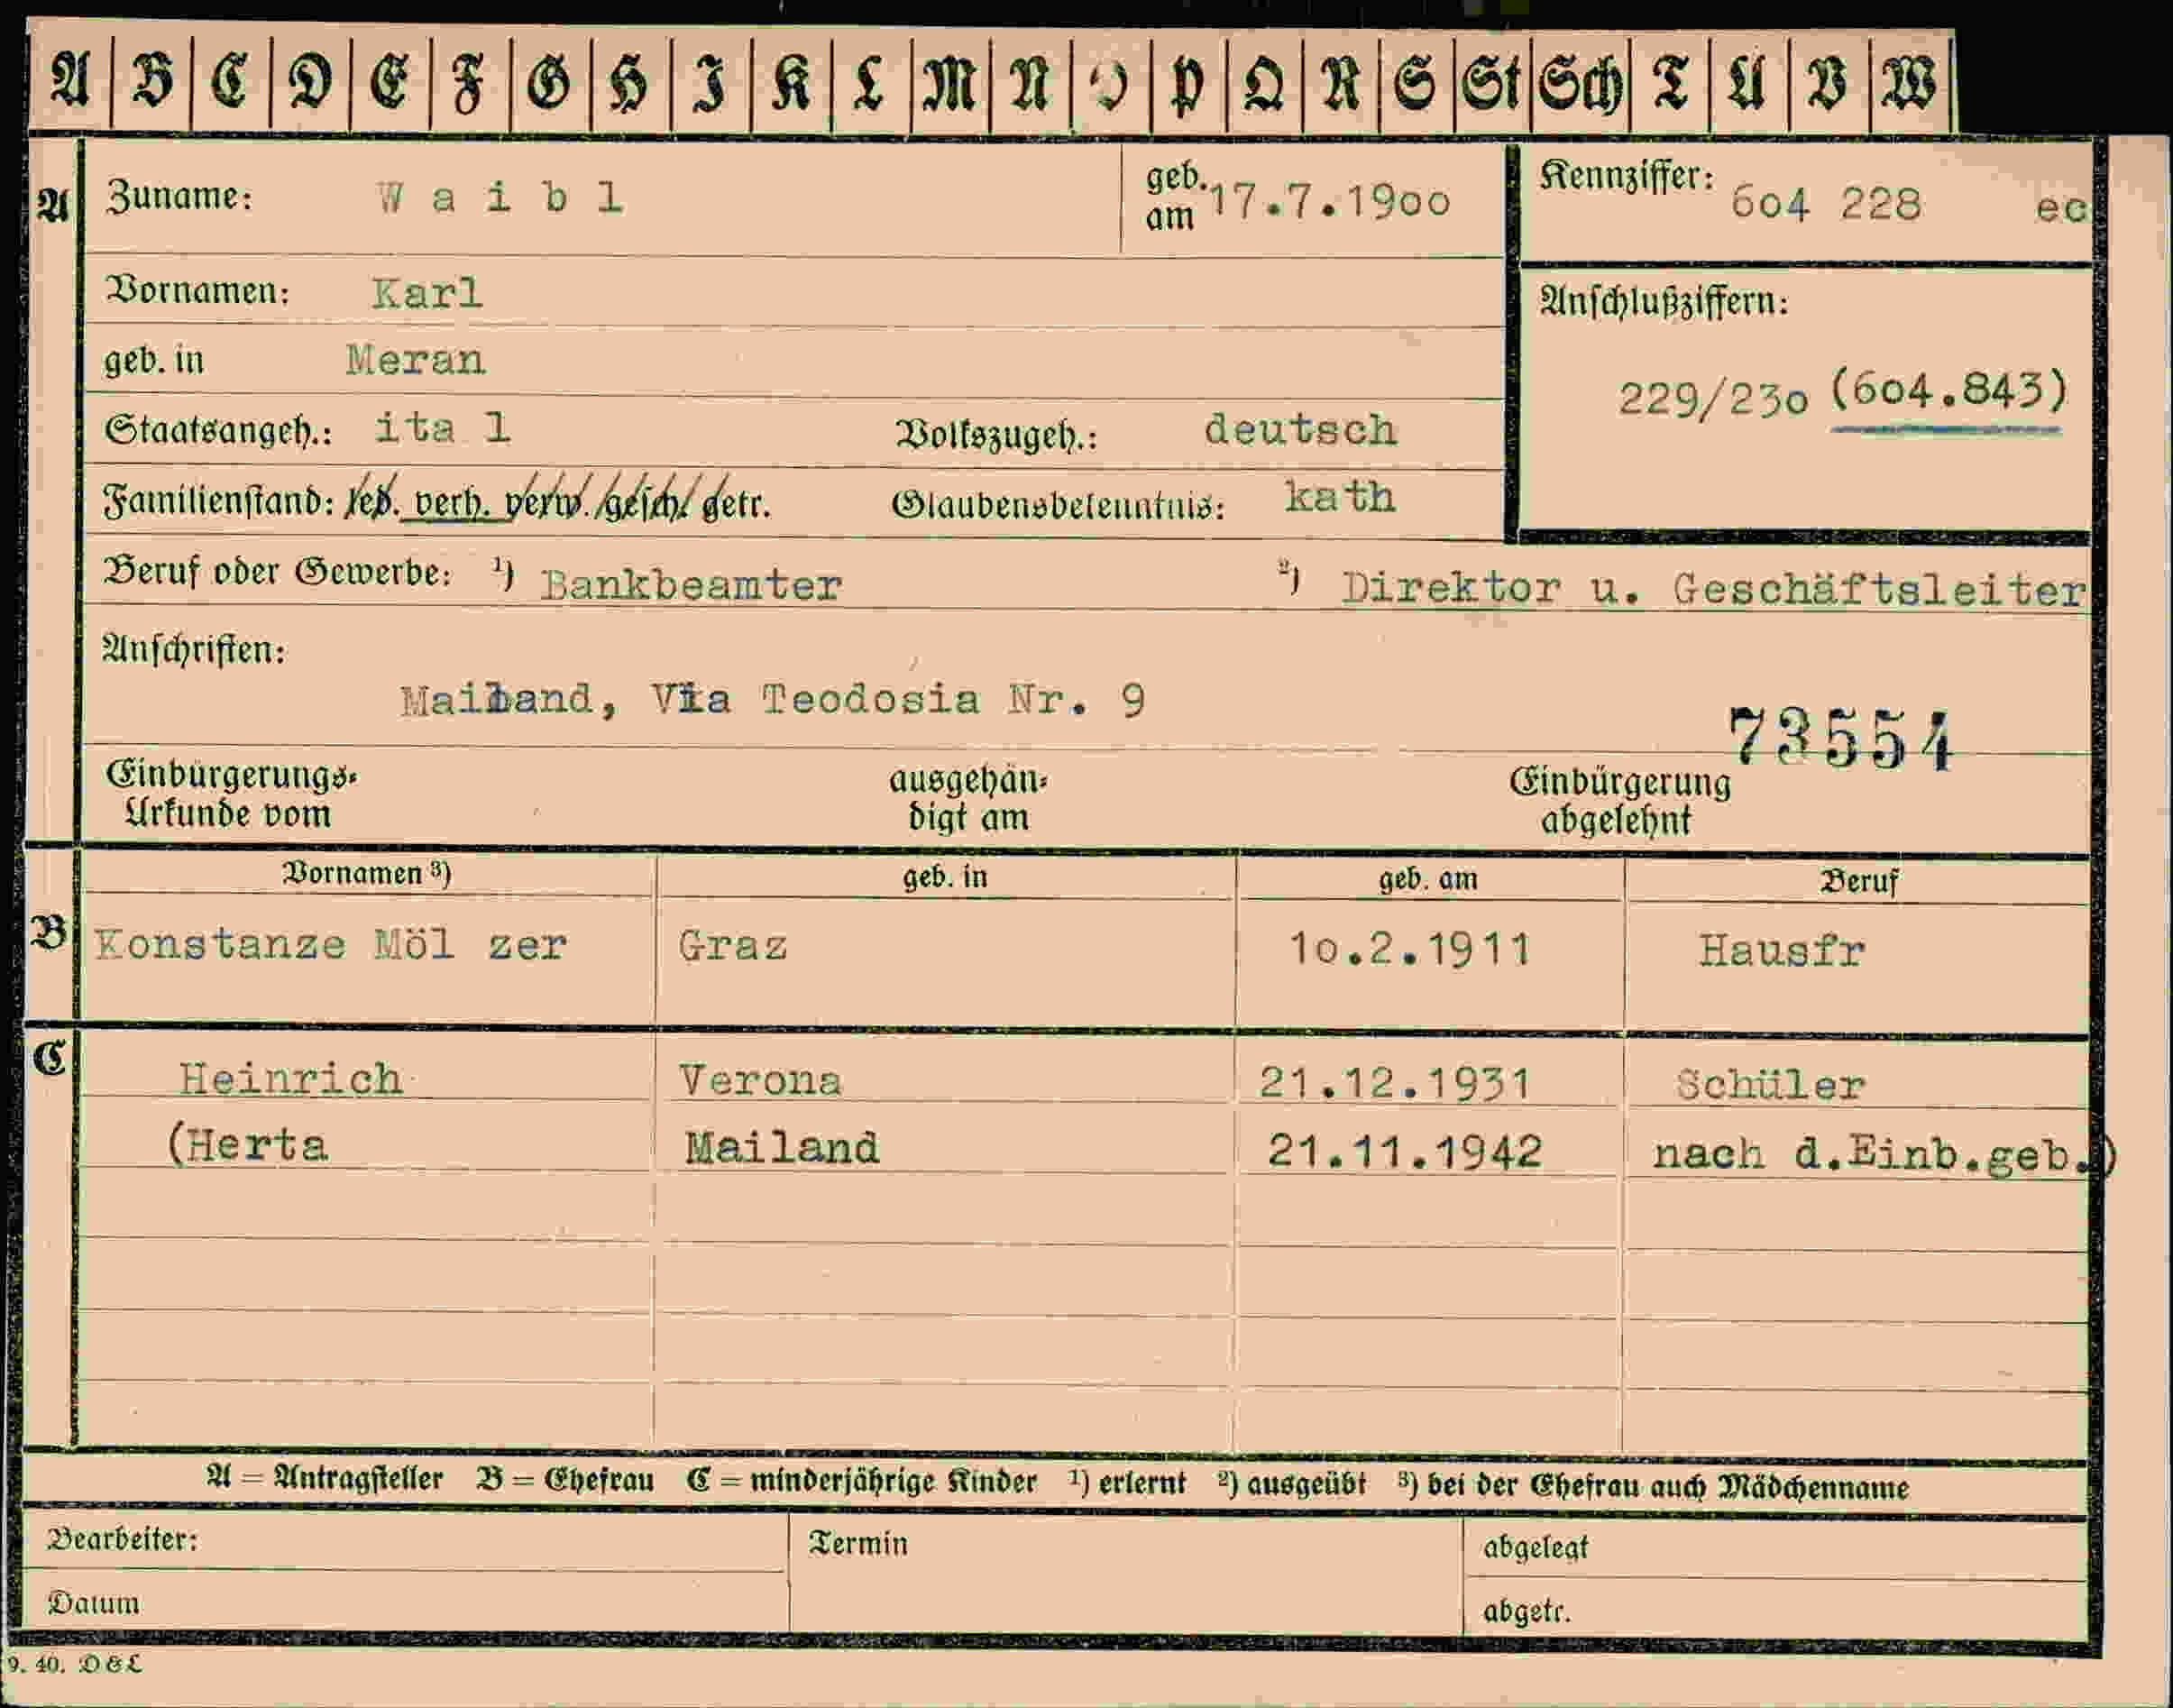 A B C D E F G H I K L M N O P Q R S St Sch T U V W
A Zuname: Waibl geb. am 17.7.1900 Kennziffer: 604 228 ec
Vornamen: Karl
Anschlußziffern:
geb. in Meran
229/230 (604.843)
Staatsangeh.: ital Volkszugeh.: deutsch
Familienstand: led. verh. verw. gesch. getr. Glaubensbekenntnis: kath
Beruf oder Gewerbe: ¹) Bankbeamter ²) Direktor u. Geschäftsleiter
Anschriften:
Mailand, Via Teodosia Nr. 9
73554
Einbürgerungs- ausgehän- Einbürgerung
Urkunde vom digt am abgelehnt
Vornamen ³) geb. in geb. am Beruf
B Konstanze Mölzer Graz 10.2.1911 Hausfr
C
Heinrich Verona 21.12.1931 Schüler
(Herta Mailand 21.11.1942 nach d.Einb.geb.)
A = Antragsteller B = Ehefrau C = minderjährige Kinder ¹) erlernt ²) ausgeübt ³) bei der Ehefrau auch Mädchenname
Bearbeiter: Termin abgelegt
Datum abgetr.
9. 40. D & L